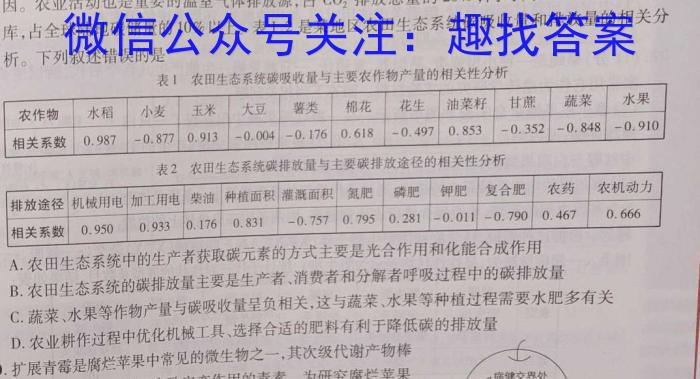 因。农业活动也是重要的温室气体排放源,占CO₂排放总量的
库,占全球
微信公众号关注：趣找答案
析。下列叙述错误的是
表1 农田生态系统碳吸收量与主要农作物产量的相关性分析
农作物 水稻 小麦 玉米 大豆 薯类 棉花 花生 油菜籽 甘蔗 蔬菜 水果
相关系数 0.987 -0.877 0.913 -0.004 -0.176 0.618 -0.497 0.853 -0.352 -0.848 -0.910
表2 农田生态系统碳排放量与主要碳排放途径的相关性分析
排放途径 机械用电 加工用电 柴油 种植面积 灌溉面积 氮肥 磷肥 钾肥 复合肥 农药 农机动力
相关系数 0.950 0.933 0.176 0.831 -0.757 0.795 0.281 -0.011 -0.790 0.467 0.666
A.农田生态系统中的生产者获取碳元素的方式主要是光合作用和化能合成作用
B.农田生态系统的碳排放量主要是生产者、消费者和分解者呼吸过程中的碳排放量
C.蔬菜、水果等作物产量与碳吸收量呈负相关,这与蔬菜、水果等种植过程需要水肥多有关
D.农业耕作过程中优化机械工具、选择合适的肥料有利于降低碳的排放量
扩展青霉是腐烂苹果中常见的微生物之一,其次级代谢产物棒
为研究腐烂苹果
病健交界处